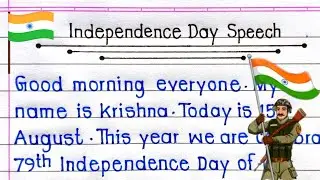 Independence Day Speech
Good morning everyone. My
name is Krishna. Today is 15
August. This year we are
79th Independence Day of